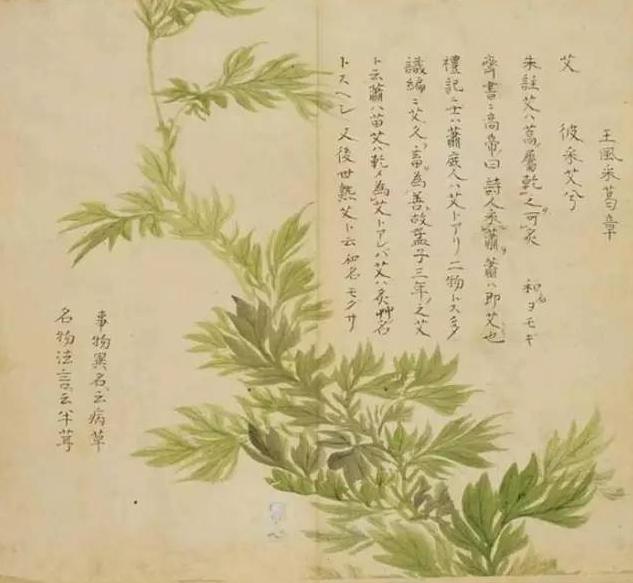 王風采葛章
艾 彼采艾兮
朱註艾ハ蒿屬乾之可灸 和名ヨモギ
齊書ニ高帝曰詩人采蕭蕭ハ即艾也
禮記ニ士ハ蕭庶人ハ艾トアリ二物トスヘシ
識編ニ艾久ク畜為善故孟子三年之艾
ト云蕭ハ苗艾ハ乾イ為艾トアレバ艾ハ灸艸名
トスヘシ又後世熟艾ト云和名モクサ
事物異名云病草
名物法言云半茸